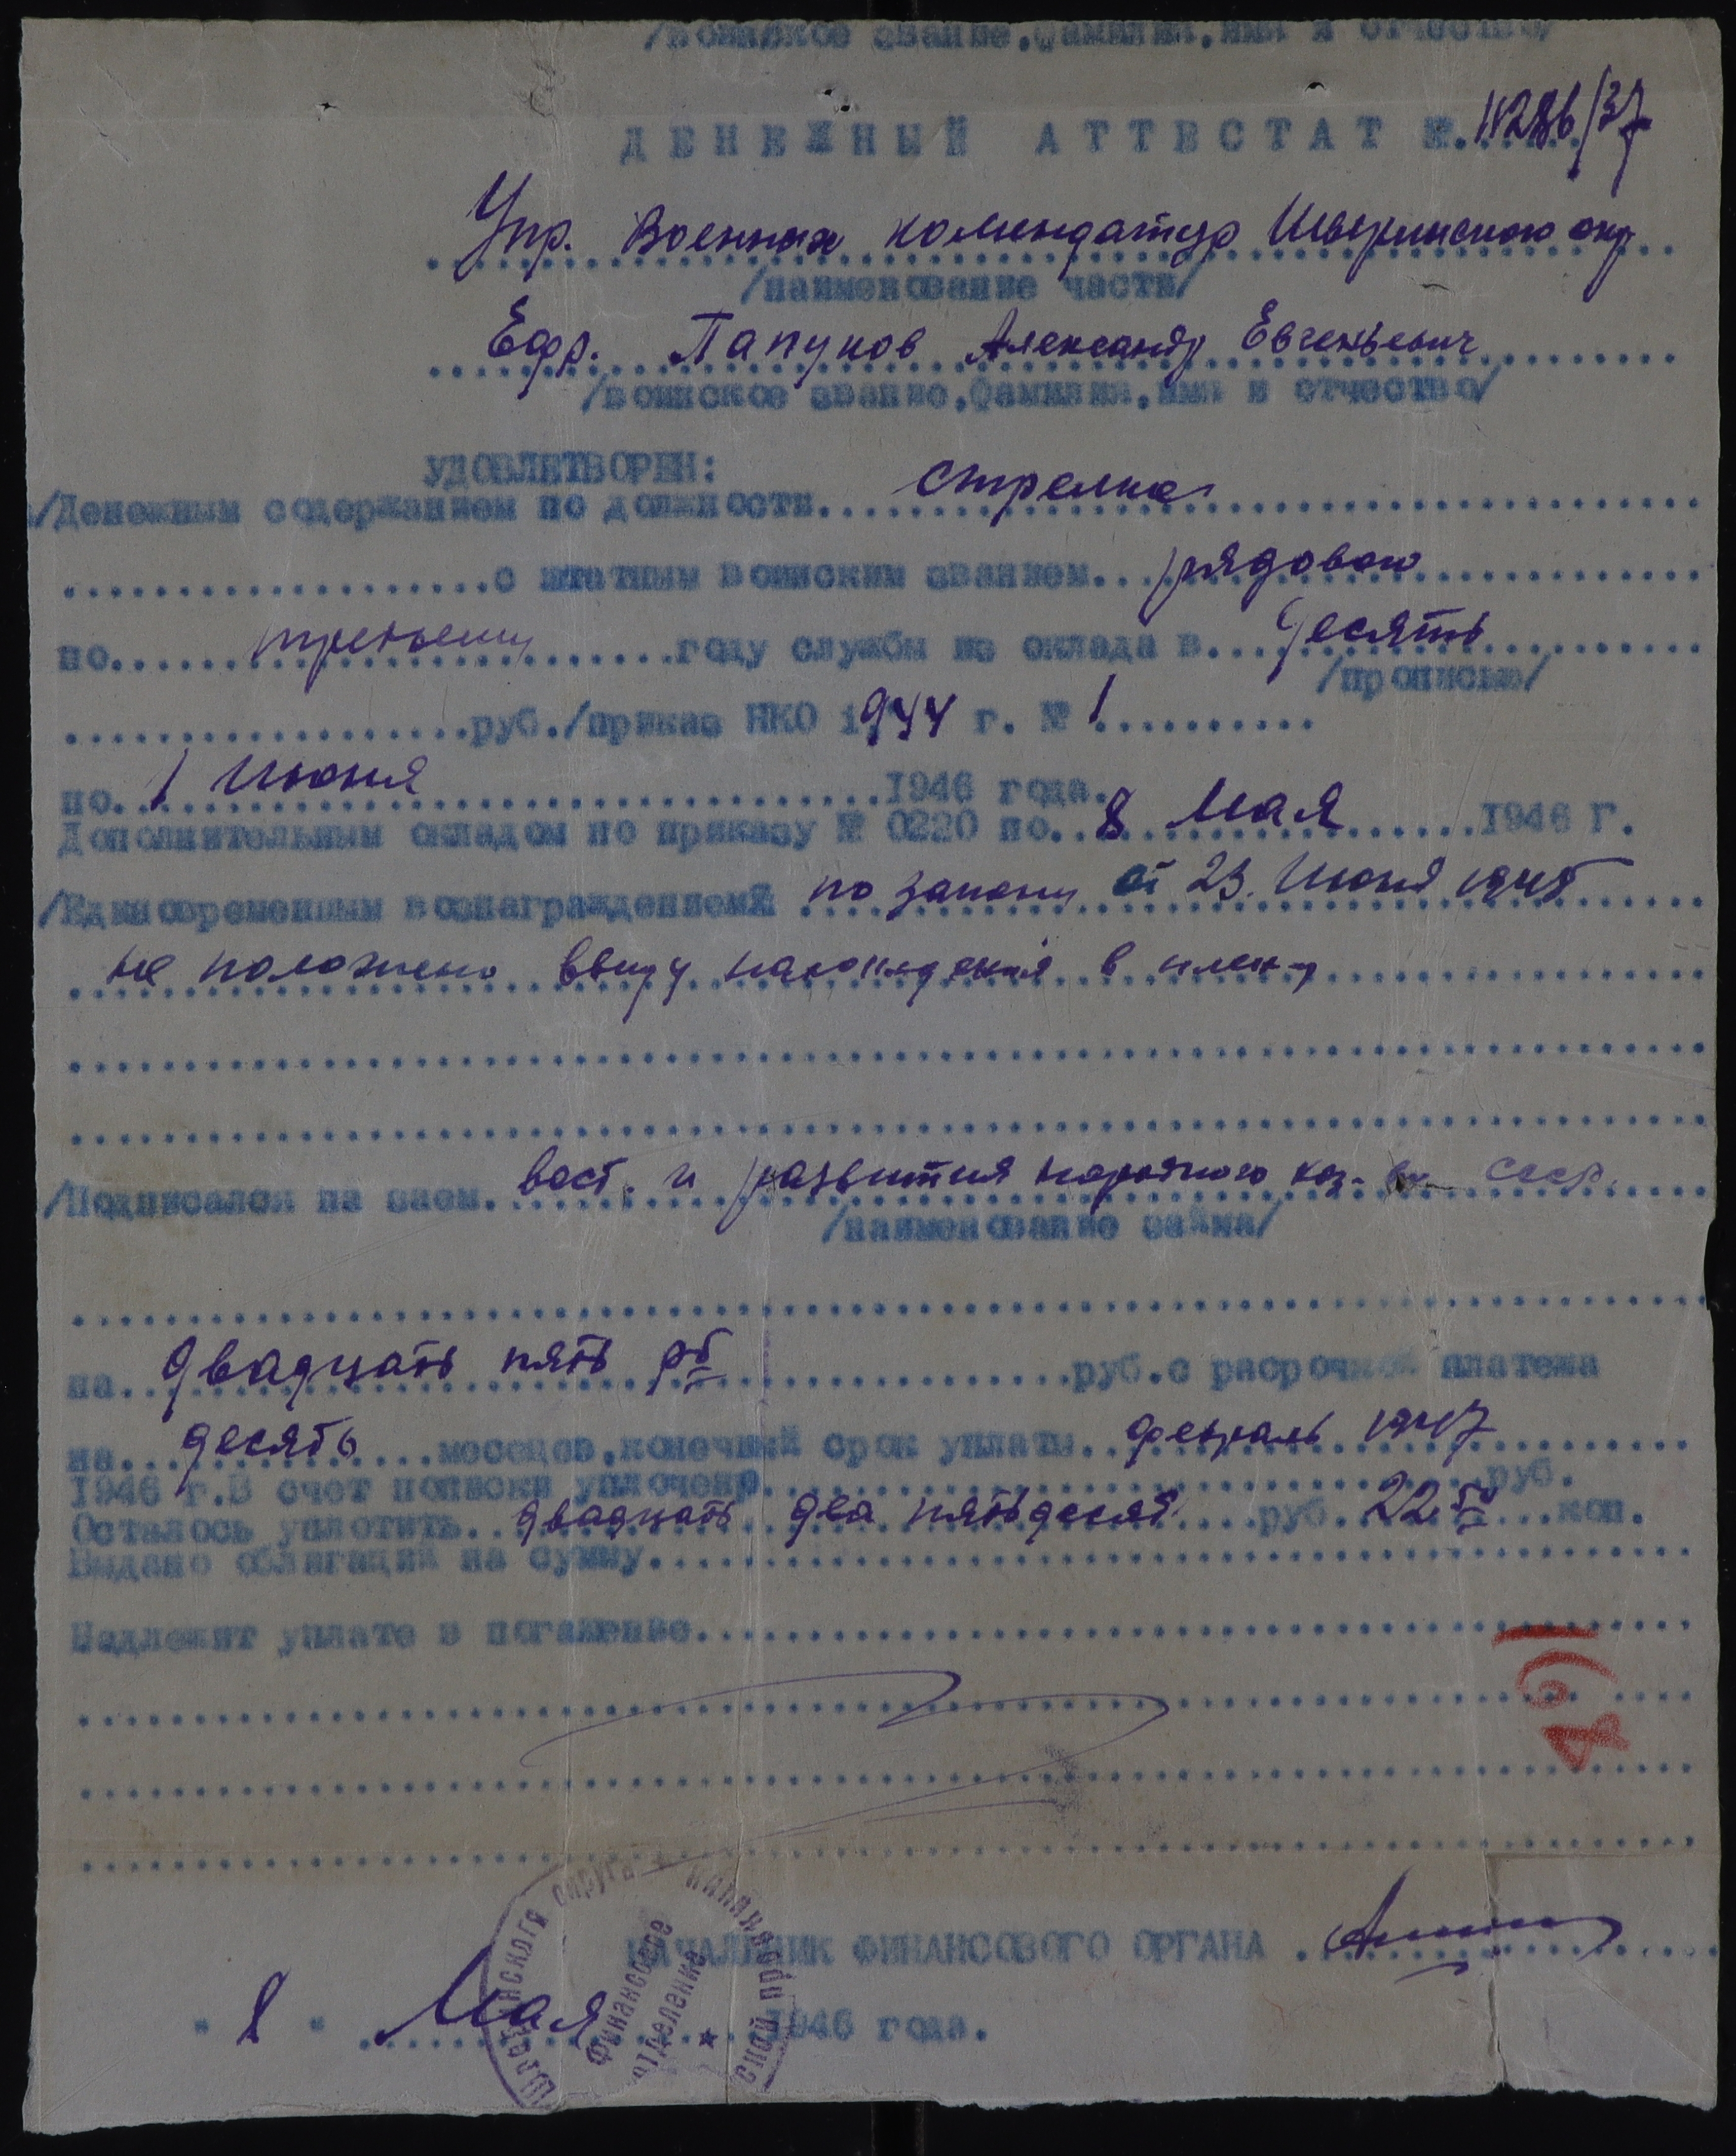 /воинское звание,фамилия,имя и отчество/
ДЕНЕЖНЫЙ АТТЕСТАТ №.
Упр. Военных комендатур Шверинского окр
/наименование части/
Ефр. Папуков Александр Евгеньевич
/воинское звание,фамилия,имя и отчество/
УДОВЛЕТВОРЕН:
/Денежным содержанием по должности. стрелка
с штатным воинским званием. рядового
по. третьему году службы из оклада в. десять
/прописью/
руб./приказ НКО 1944 г. № 1
по. 1 Июня 1946 года.
Дополнительным окладом по приказу № 0220 по. 8 Мая 1946 Г.
/Единовременным вознаграждением по закону от 23. Июня 1945
не положено ввиду нахождения в плену
/Подписался на заем. вост. и развития народного хоз-ва СССР.
/наименование займа/
на. двадцать пять рб руб.с расрочкой платежа
на. десять месецов,конечный срок уплаты. февраль 1947
1946 г.В счет подписки уплочено. руб.
Осталось уплотить. двадцать два пятьдесят руб. 22 50 коп.
Выдано облигаций на сумму.
Надлежит уплате в погашение.
49
НАЧАЛЬНИК ФИНАНСОВОГО ОРГАНА
" 8 " Мая 1946 года.
округа
Финансовое
отделение